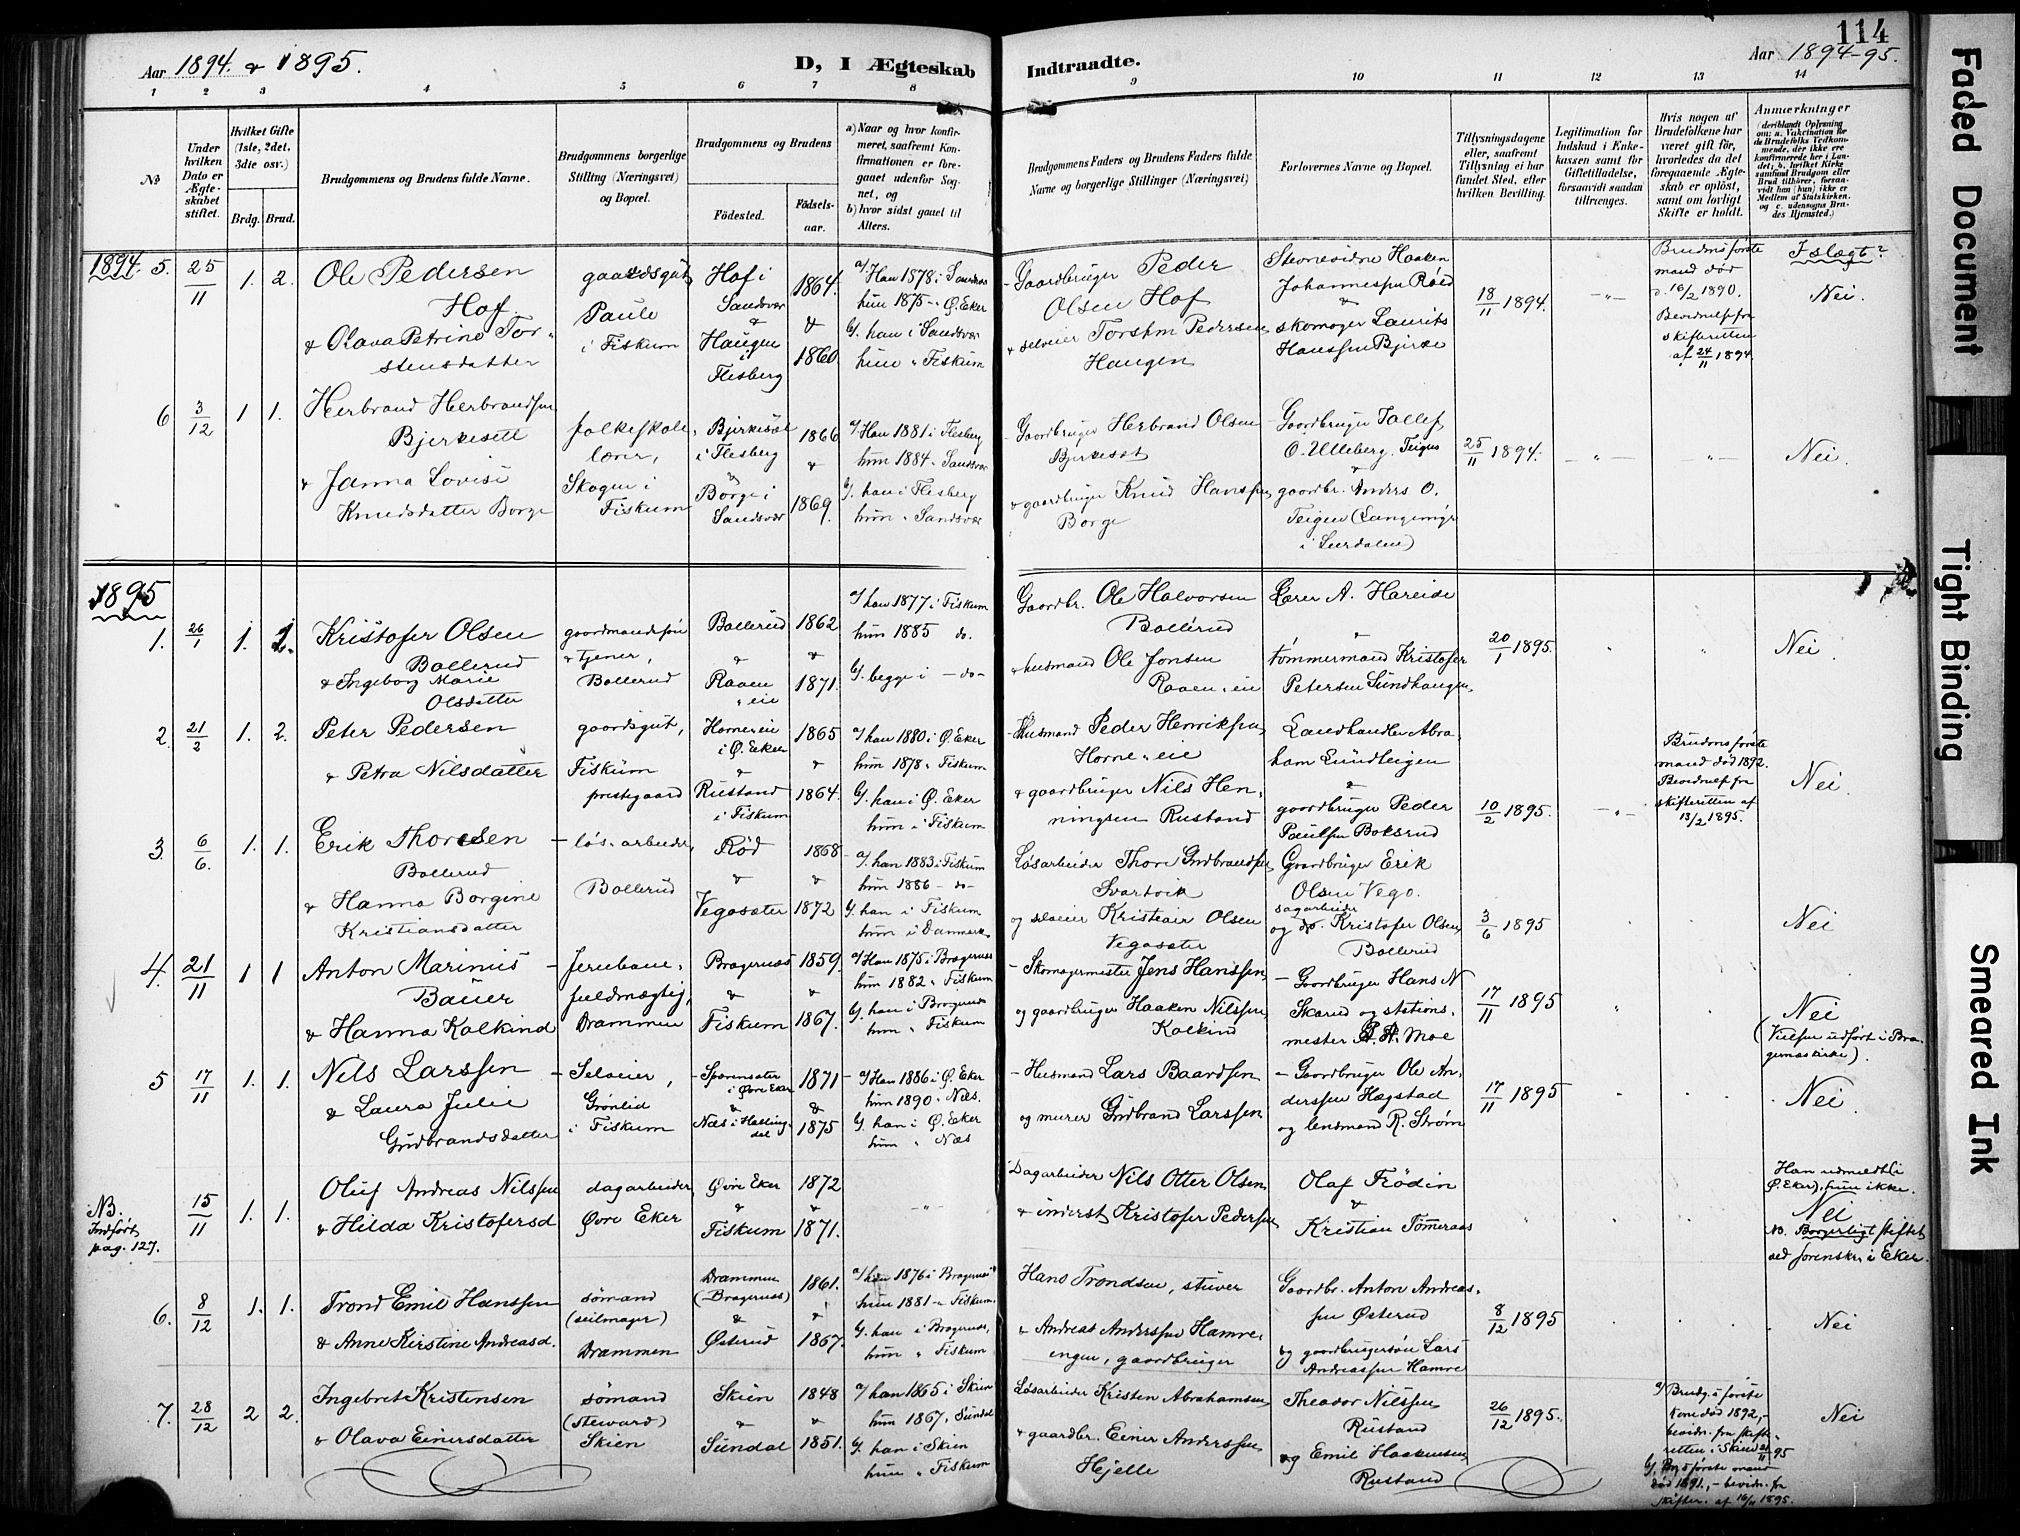 Aar 1894. & 1895.
D, I Ægteskab
Indtraadte.
Aar 1894-95.
114
1 2 3 4 5 6 7 8 9 10 11 12 13 14
No
Under
hvilken
Dato er
Ægte-
skabet
stiftet.
Hvilket Gifte
(1ste, 2det,
3die osv.)
Brdg. Brud.
Brudgommens og Brudens fulde Navne.
Brudgommens borgerlige
Stilling (Næringsvei)
og Bopæl.
Brudgommens og Brudens
Födested.
Födsels-
aar.
a) Naar og hvor konfir-
meret, saafremt Kon-
firmationen er fore-
gaaet udenfor Sog-
net, og
b) hvor sidst gaaet til
Alters.
Brudgommens Faders og Brudens Faders fulde
Navne og borgerlige Stillinger (Næringsvei)
Forlovernes Navne og Bopæl.
Tillysningsdagene
eller, saafremt
Tillysning ei har
fundet Sted, efter
hvilken Bevilling.
Legitimation for
Indskud i Enke-
kassen samt for
Giftetilladelse,
forsaavidt saadan
tiltrænges.
Hvis nogen af
Brudefolkene har
været gift för,
hvorledes da det
foregaaende Ægte-
skab er oplöst,
samt om lovligt
Skifte er holdt.
Anmærkninger
(deriblandt Oplysning
om: a. Vakcination for
de Brudefolks Vedkom-
mende, der ikke ere
konfirmerede her i Lan-
det; b. hvilket Kirke
samfund Brudgom eller
Brud tilhörer, forsaa-
vidt han (hun) ikke er
Medlem af Statskirken,
og c. udensogns Bru-
des Hjemsted.)
1894. 5. 25/11 1. 2. Ole Pedersen
Hof.
& Olava Petrine Tor-
stensdatter
gaardsgut
Paule
i Fiskum
Hof i
Sandsvær
&
Haugen
i
Flesberg
1864.
&
1860
a/ Han 1878 i Sandsvær
hun 1875 - Ø. Eker
b/. han i Sandsvær
hun " Fiskum
- Gaardbruger Peder
Olsen Hof
& selveier Torsten Pedersen
Haugen
Haaken
Johannessen Røed
&
skomager Laurits
Hanssen Bjerke
18/11 1894.
-"-
Brudens første
mand død
d. 16/2 1890.
Bevidnelse fra
skifteretten
af 24/11 1894.
I slægt?
Nei.
6 3/12 1 1. Herbrand Herbrandsen
Bjerkesett
& Janna Lovise
Knudsdatter Borge
folkeskole-
lærer,
Skogen i
Fiskum
Bjerkesæt
i Flesberg
&
Borge i
Sandsvær
1866
&
1869.
a/ Han 1881 i Flesberg
hun 1884 - Sandsvær
b/. han i Flesberg
hun " Sandsvær
- Gaardbruger Herbrand Olsen
Bjerkesæt
& gaardbruger Knud Hanssen
Borge
- Gaardbruger Tollef
O. Ulleberg. Teigen
&
gaardbr. Anders O.
Teigen (Langemyr
i Lurdalen)
25/11 1894.
-"-
-"-
Nei.
1895
1. 26/1 1. 1. Kristofer Olsen
Bollerud
& Ingeborg Marie
Olsdatter
gaardmandssøn
& tjener,
Bollerud
Bollerud
&
Raaen
" eie
1862
&
1871.
a/ han 1877 i Fiskum
hun 1885 do.
b/. begge i - do -
Gaardbr. Ole Halvorsen
Bollerud
& husmand Ole Jonsen
Raaen, eie
Lærer A. Hareide
&
tømmermand Kristofer
Petersen Sundhaugen,
20/1 1895.
"
"
Nei.
2. 21/2 1. 2. Peter Pedersen
& Petra Nilsdatter
gaardsgut,
Fiskum
prestegaard
Horne-eie
i Ø. Eker
&
Rustand
i Fiskum
1865
&
1864.
a/ han 1880 i Ø. Eker
hun 1878 " Fiskum
b/. han i Ø. Eker
hun " Fiskum
- Husmand Peder Henriksen
Horne-eie
& gaardbruger Nils Hen-
ningsen Rustand
Landhandler Abra-
ham Sundteigen
&
gaardbruger Peder
Paulsen Boksrud
10/2 1895.
-"-
Brudens første
mand død 1892.
Bevidnelse fra
skifteretten af
13/2 1895.
Nei.
3. 6/6. 1. 1. Erik Thoresen
Bollerud
& Hanna Borgine
Kristiansdatter
- løs-arbeider,
Bollerud
Rød
&
Vegosæter
1868
&
1872
- a/. han 1883 i Fiskum
hun 1886 - do -
b/. han i Fiskum
hun i Danmark
Løsarbeider Thore Gudbrandsen
Svartvik
og selveier Kristian Olsen
Vegosæter
Gaardbruger Erik
Olsen Vego.
sagarbeider
og do. Kristofer Olsen,
Bollerud
3/6 1895
Nei
4. 21/11 1 1 Anton Marinius
Bauer
& Hanna Kolkind
- Jernbane-
fuldmægtig,
Drammen
Bragernæs
&
Fiskum
1859.
&
1867.
a/ Han 1875 i Bragernæs
hun 1882 " Fiskum
b/. han i Bragernæs
hun " Fiskum
- Skomagermester Jens Hanssen,
og gaardbruger Haaken Nilssen
Kolkind
- Gaardbruger Hans N
Skarud og stations-
mester A. Moe
17/11 1895
"
Nei
(Vielsen udført i Bra-
gernæs kirke).
5 17/11 1. 1. Nils Larssen
& Laura Julie
Gudbrandsdatter
- Selveier,
Grønlid
i Fiskum
- Sporensæter
i Øvre Eker
&
Næs i Halling-
dal
1871
&
1875
- a/ Han 1886 i Ø. Eker
hun 1890 - Næs.
b/. han i Ø. Eker
hun " Næs
- Husmand Lars Baardsen
og murer Gudbrand Larssen
- Gaardbruger Ole An-
derssen Hægstad
og lensmand R. Strøm
17/11 1895
Nei.
NB.
Indført
pag. 127.
15/11 1. 1. Oluf Andreas Nilssen
& Hilda Kristofersd
dagarbeider,
Øvre Eker
Øvre Eker
&
Fiskum
1872
&
1871.
-"-
Dagarbeider Nils Otter Olsen
& inderst Kristofer Pedersen
Olaf Frödin
&
Kristian Tømeraas
"
Han udmeldt (i
Ø. Eker), hun ikke.
Nei
NB. Borgerligt stiftet
ved sorenskr. i Eker.
6. 8/12 1. 1. Trond Emil Hanssen
& Anne Kirstine Andreasd.
sømand
(seilmager)
Drammen
Drammen
(Bragernæs)
&
Østerud
1861.
&
1867.
a/ han 1876 i Bragernæs
hun 1881 - Fiskum.
b/. han i Bragernæs,
hun " Fiskum
Hans Trondsen, stuver
& Andreas Anderssen Hamre-
engen, gaardbruger
Gaardbr. Anton Andreas-
sen Østerud
og gaardbrugersøn Lars
Andreassen Hamre
8/12 1895
Nei
7. 28/12 2 2. Ingebret Kristensen
& Olava Einersdatter
sømand
(steward)
Skien
Skien
&
Sundal
1848
&
1851.
a/ han 1865 i Skien
hun 1867, Sundal
b/. han i Skien
hun " Fiskum
Løsarbeider Kristen Abrahamsen
& gaardbr. Einer Anderssen
Hejelle
Theodor Nilssen
Rustand
og Emil Haakensen
Rustand
26/12 1895.
a/ Brudg.s første
kone død 1892,-
bevidn. fra skifte-
retten i Skien 21/11 95
b/. Bruds første mand
død 1891,- bevidn. fra
skifter. af 16/11 1895.
Nei
Faded Document
Tight Binding
Smeared Ink